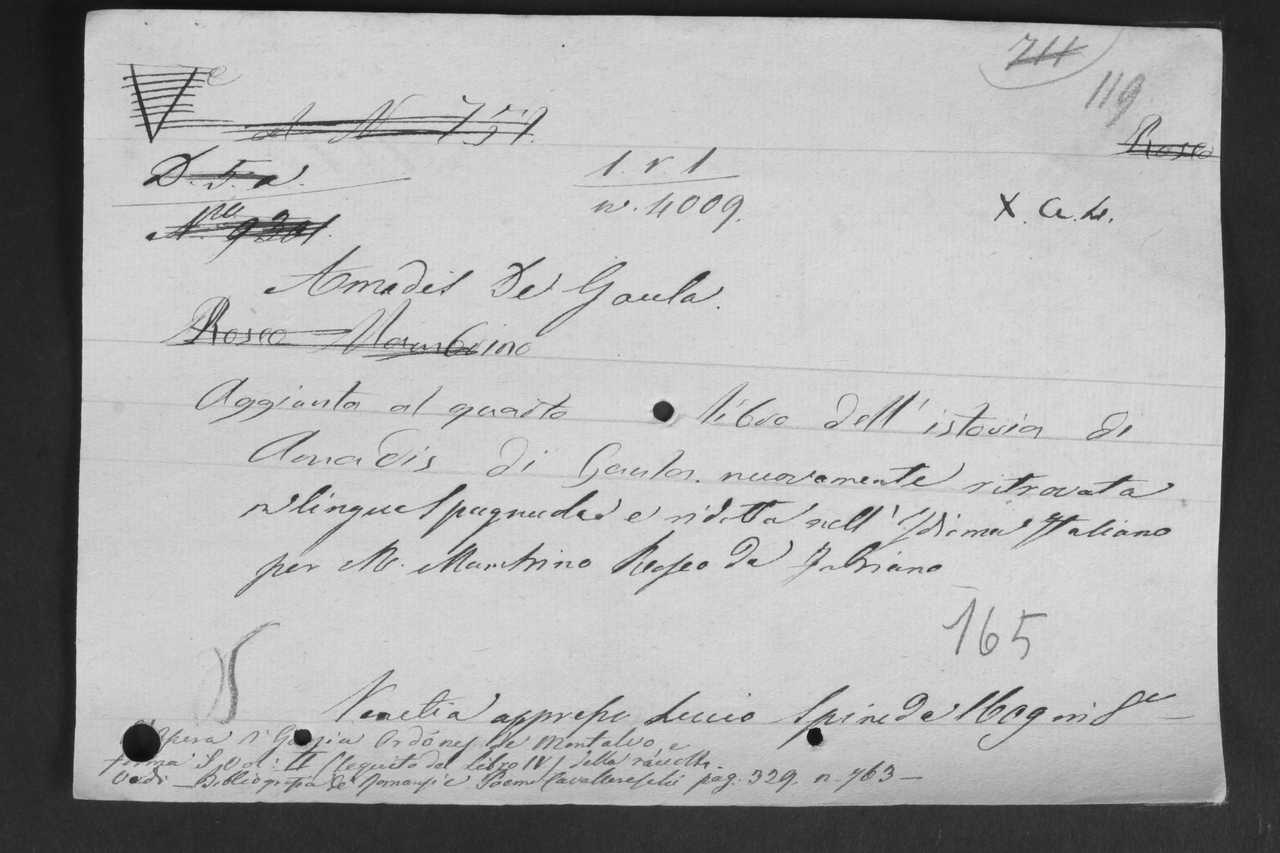 711
119
A N 7
Roseo
D. 5. a.
1. r 1
n. 4009.
X. a. 4.
N.ro 9301.
Amadis De Gaula.
Roseo Mambrino
Aggiunta al quarto libro dell' istoria di
Amadis di Gaula. nuovamente ritrovata
n lingua Spagnuola e ridotta nell' Idioma Italiano
per M. Mambrino Roseo da Fabriano
165
Venetia appresso Lucio Spineda 1609 in 8
Opera di Garzia Ordónez de Montalvo, e
forma il vol: II (seguito del libro IV) della raccolta.
Vedi - Bibliografia de Romanzi e Poemi Cavallereschi pag. 329. n. 763 -